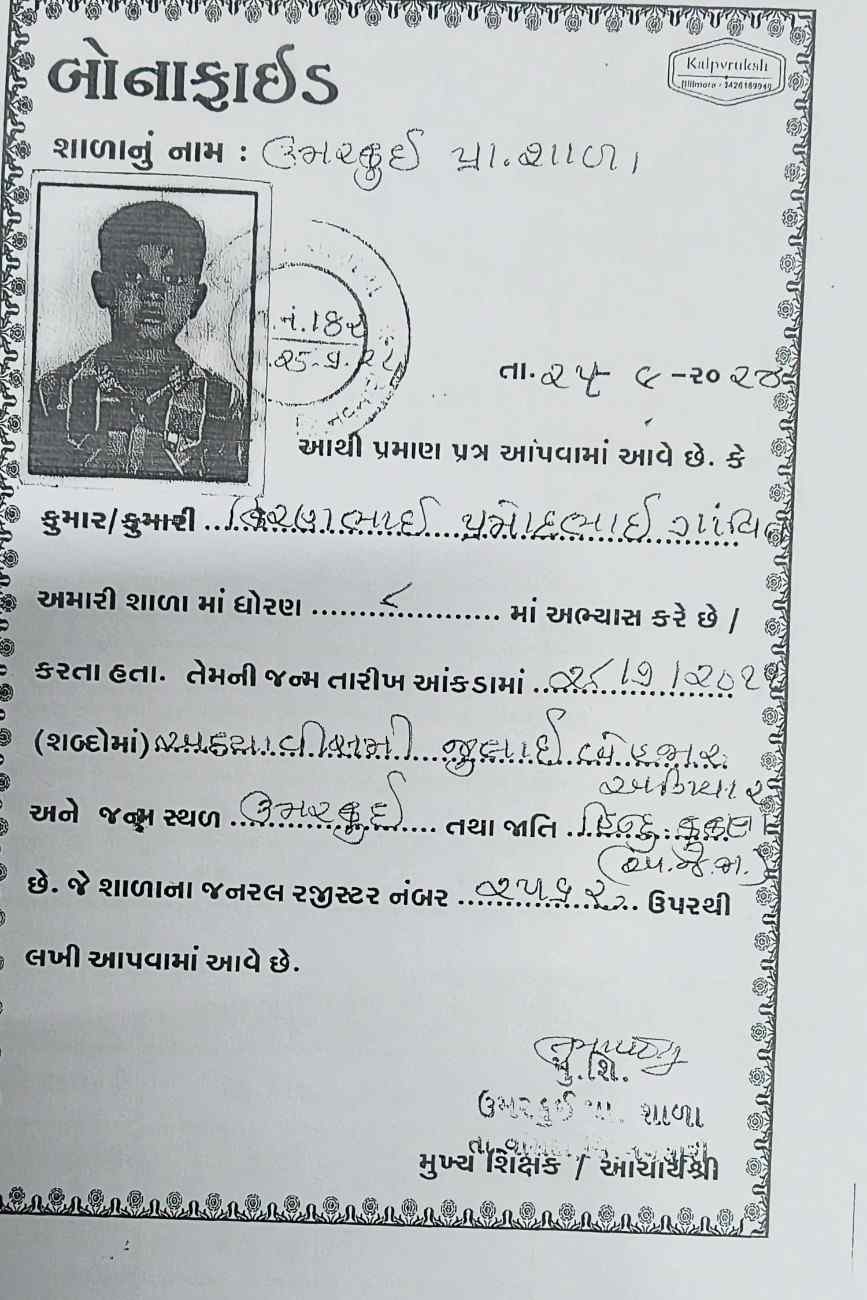 બોનાફાઈડ
Kalpvruksh
Bilimora - 9426189949
શાળાનું નામ : ઉમરકુઈ પ્રા. શાળા
નં. ૧૪૨
તા. ૨૫ ૯ - ૨૦ ૨૪
આથી પ્રમાણ પત્ર આપવામાં આવે છે. કે
કુમાર/કુમારી .. કિરણભાઈ પ્રમોદભાઈ ગાંવિત
અમારી શાળા માં ધોરણ ................ માં અભ્યાસ કરે છે /
કરતા હતા. તેમની જન્મ તારીખ આંકડામાં ..
(શબ્દોમાં) અઠ્ઠાવીસમી જુલાઈ બે હજાર
અગિયાર
અને જન્મ સ્થળ .. ઉમરકુઈ .... તથા જાતિ .. હિન્દુ કુકણા
(અ.જ.જા.)
છે. જે શાળાના જનરલ રજીસ્ટર નંબર .. .. ઉપરથી
લખી આપવામાં આવે છે.
મુ.શિ.
ઉમરકુઈ પ્રા. શાળા
મુખ્ય શિક્ષક / આચાર્યશ્રી